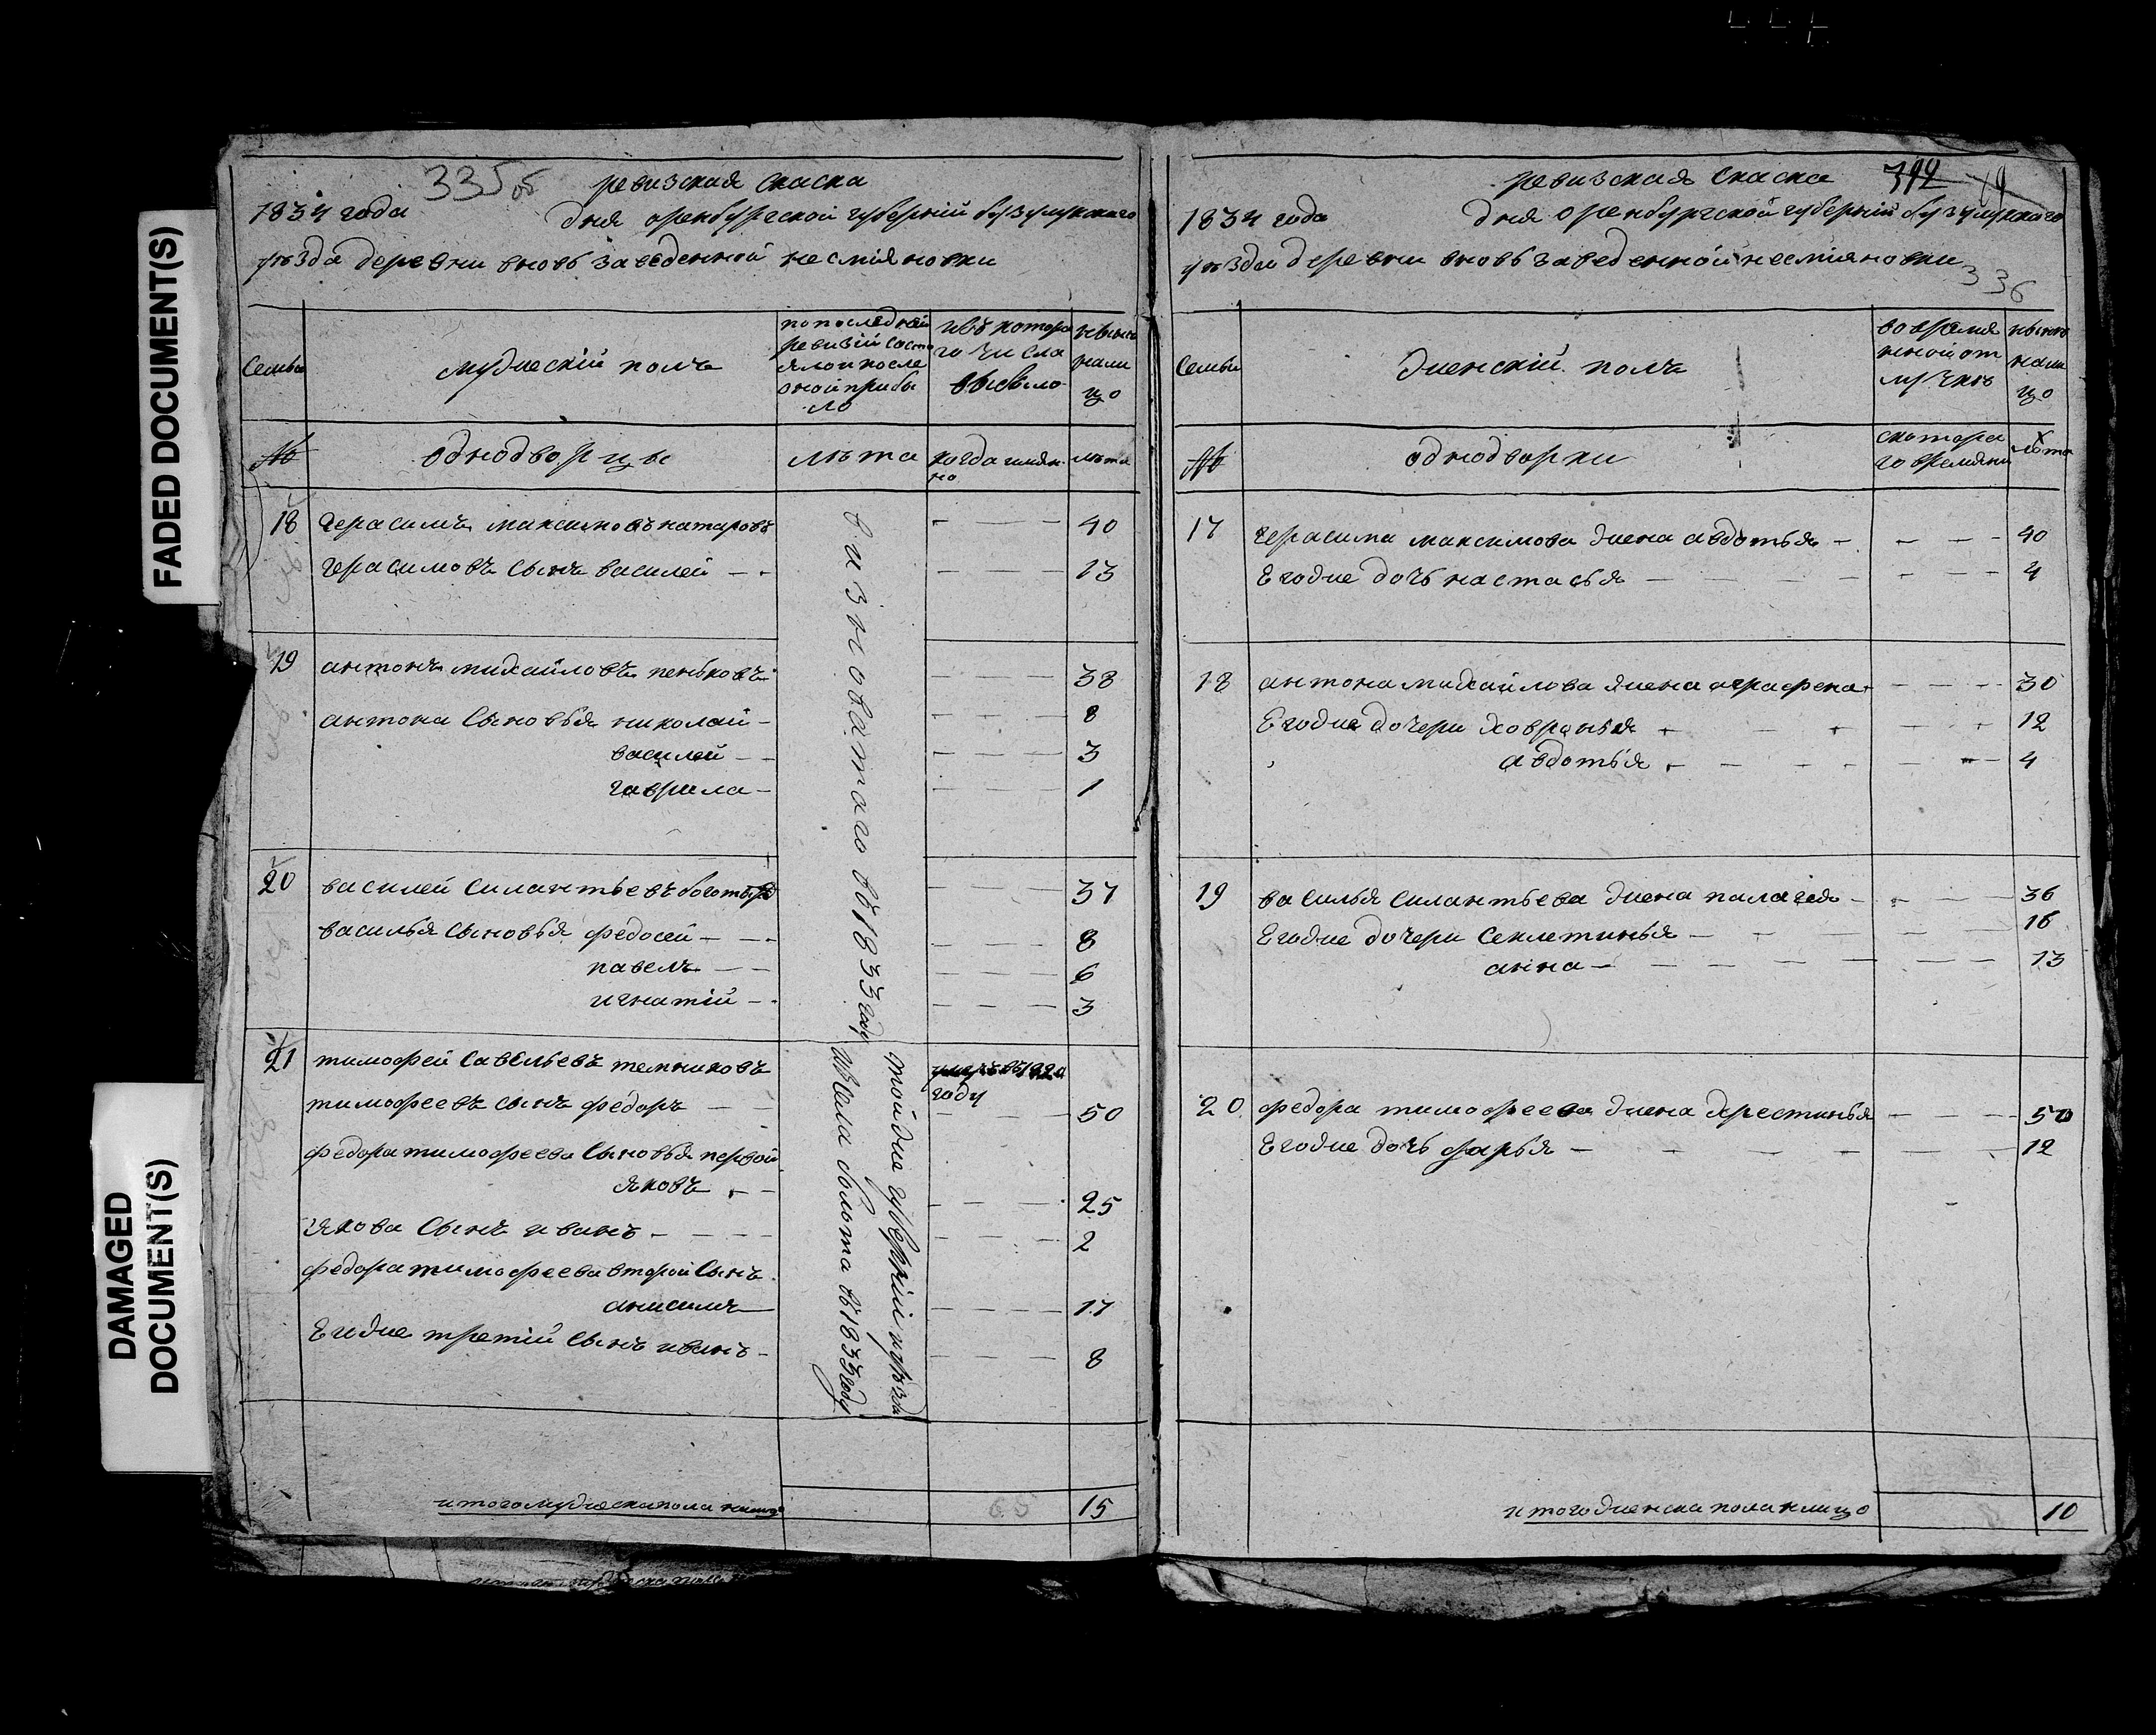 FADED DOCUMENT(S)
DAMAGED
DOCUMENT(S)
335 об
ревизская скаска
1834 года дня оренбургской губерній бузулукскаго
уѣзда деревни вновь заведенной несмѣяновки
Семьи
мужескій полъ
по последней
ревизіи состо
яло и после
оной прибы
ло
изъ котора
го числа
выбыло
ныне
нали
цо
№
однодворцы
лѣта
когда имян
но
лѣта
18 герасимъ максимовъ натаровъ — — — 40
герасимовъ сынъ василей — — — 13
19 антонъ михайловъ пеньковъ — — — 38
антона сыновья николай — — — 8
василей — — — 3
гаврила — — — 1
20 василей силантьевъ — — — 37
василья сыновья федосей — — — 8
павелъ — — — 6
игнатій — — — 3
21 тимофей савельевъ темниковъ умеръ въ
году
тимофеевъ сынъ федоръ — — — 50
федора тимофеева сыновья первой
яковъ — — — 25
якова сынъ иванъ — — — 2
федора тимофеева второй сынъ
анисимъ — — — 17
Егоже третій сынъ иванъ — — — 8
въ 1833 году
тойже губерніи уѣзда
изъ села болота въ 1833 году
итого мужеска пола налицо 15
ревизская скаска
392
19
1834 года дня оренбургской губерніи бузулукскаго
уѣзда деревни вновь заведенной несмѣяновки
336
Семьи
женскій полъ
во врѣмя
нной от
лучкѣ
нынѣ
нали
цо
№
однодворки
скотора
го врѣмяни
лѣта
17 герасима максимова жена авдотья — — — 40
Егоже дочь настасья — — — 4
18 антона михайлова жена аграфена — — — 30
Егоже дочери ховранья — — — 12
авдотья — — — 4
19 василья силантьева жена палагея — — — 36
Егоже дочери секлетинья — — — 16
анна — — — 13
20 федора тимофеева жена хрестинья — — — 50
Егоже дочь — — — 12
итого женска пола налицо 10